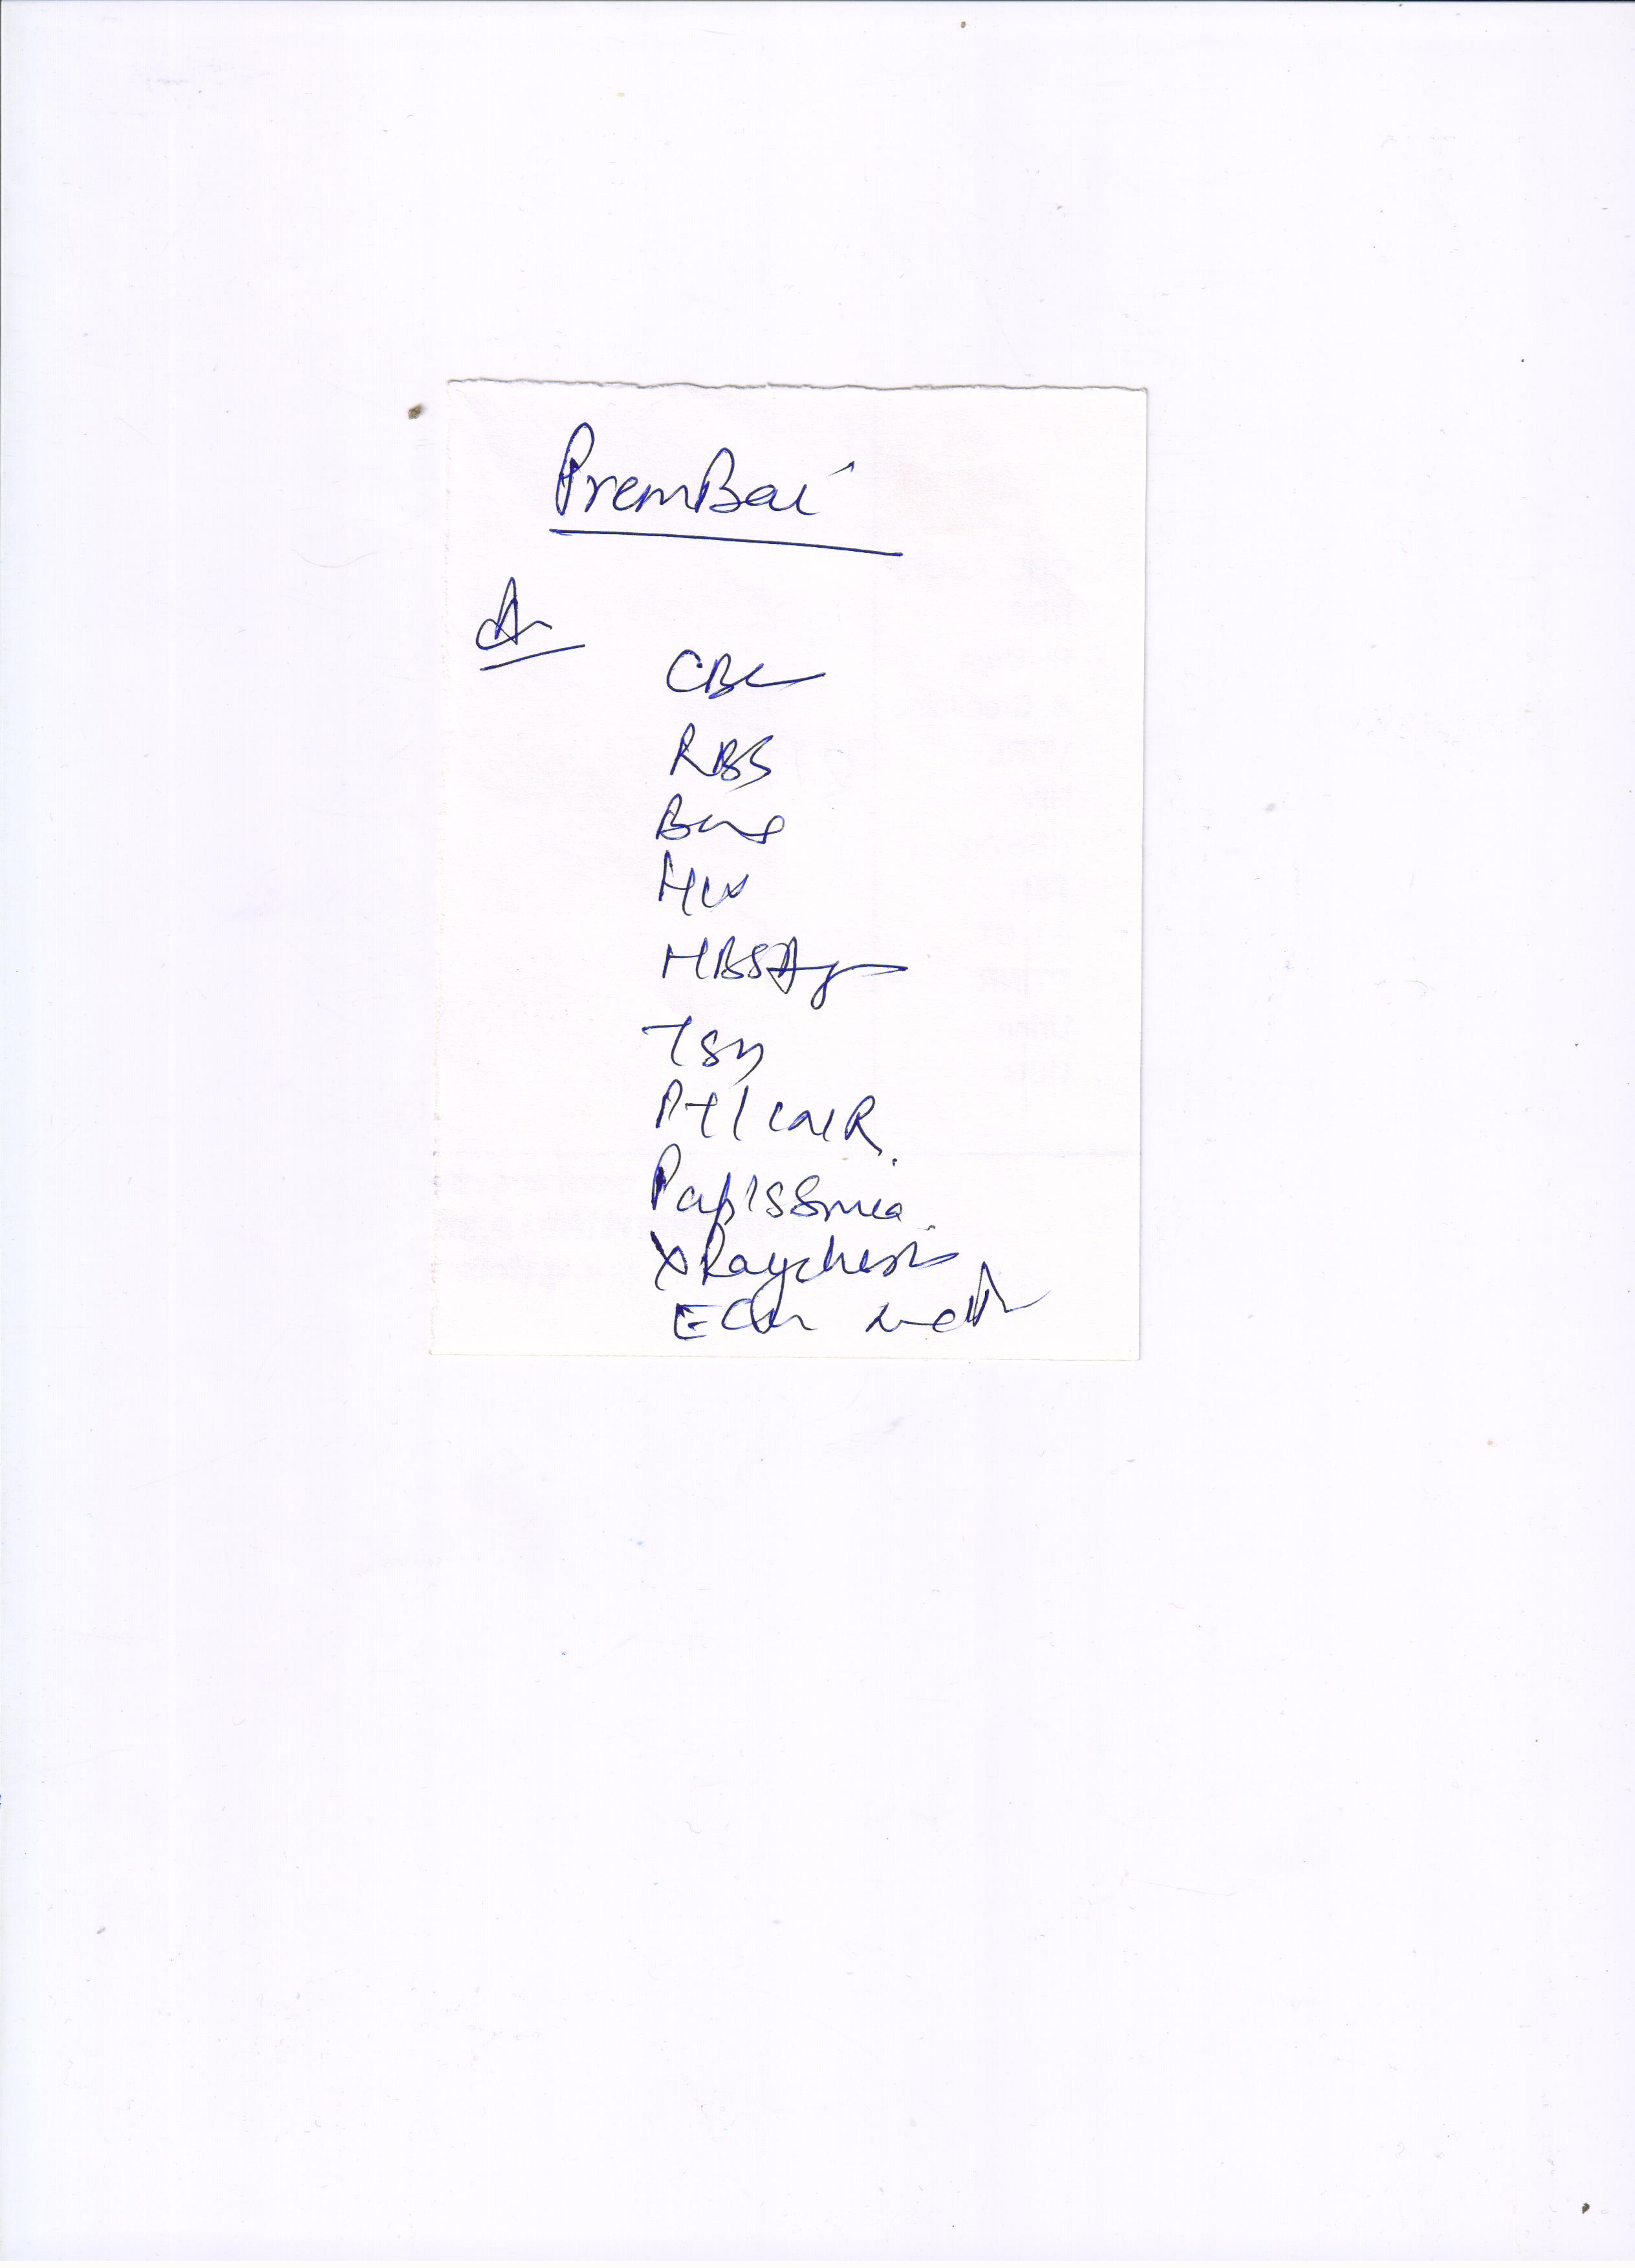 PremBai
CBC
RBS
HIV
HBSAg
TSH
PT/INR
Pap's Smea
X Ray chest
ECG